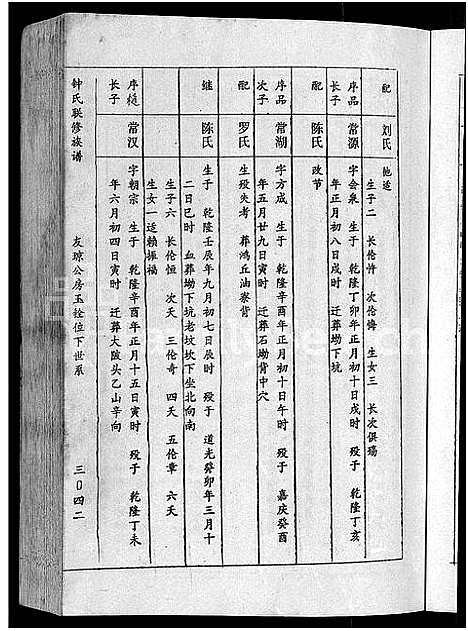 配 刘氏 他适
生子二 长伦忏 次伦悔 生女三 长次俱殇
序品长子 常源 字会泉 生于 乾隆丁卯年正月初十日戌时 殁于 乾隆丁亥
年正月初八日戌时 迁葬坳下坑
配 陈氏 改节
序品次子 常湖 字方成 生于 乾隆辛酉年正月初十日午时 殁于 嘉庆癸酉
年五月廿九日寅时 迁葬石坳背中穴
配 罗氏 生殁失考 葬鸿丘油寮背
继 陈氏 生于 乾隆壬辰年九月初七日辰时 殁于 道光癸卯年三月十
二日巳时 血葬坳下坑老坟坎下坐北向南
生子六 长伦恒 次夭 三伦奇 四夭 五伦章 六夭
生女一适赖振福
序榳长子 常汉 字朝宗 生于 乾隆辛酉年正月十五日寅时 殁于 乾隆丁未
年六月初四日寅时 迁葬大陂头乙山辛向
钟氏联修族谱 友琼公房玉铨位下世系 三〇四二